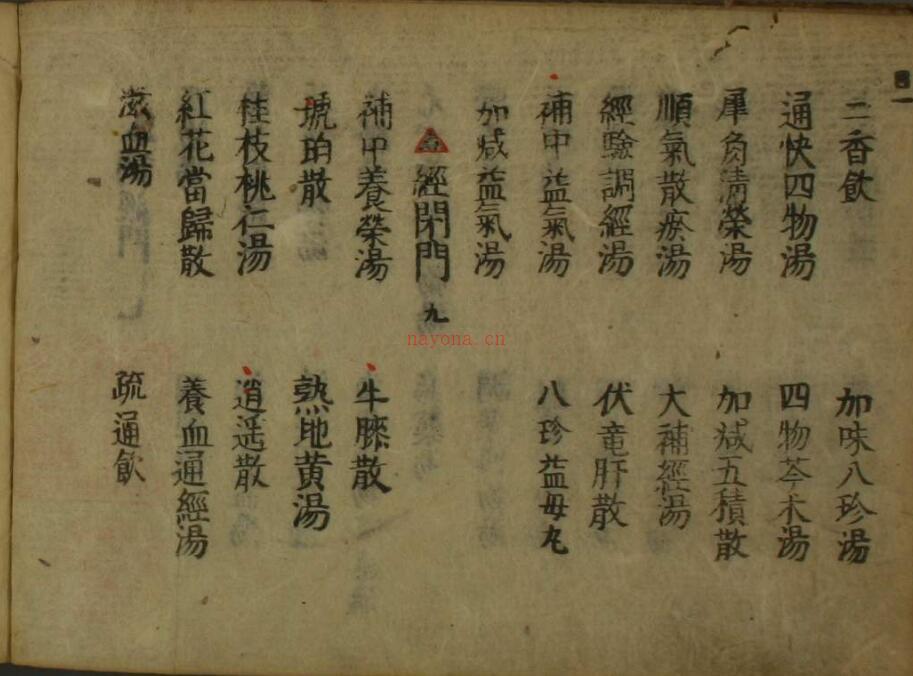 二香飲
加味八珍湯
通快四物湯
四物芩朮湯
犀角清榮湯
加减五積散
順氣散瘀湯
大補經湯
經驗調經湯
伏竜肝散
補中益氣湯
八珍益母丸
加减益氣湯
經閉門 九
補中養榮湯
牛膝散
琥珀散
熟地黄湯
桂枝桃仁湯
逍遥散
紅花當歸散
養血通經湯
滋血湯
疏通飲
nayona.cn